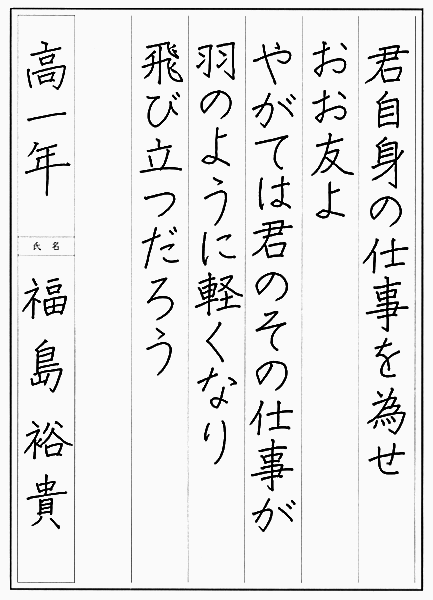 君自身の仕事を為せ
おお友よ
やがては君のその仕事が
羽のように軽くなり
飛び立つだろう
高一年
氏名
福島裕貴